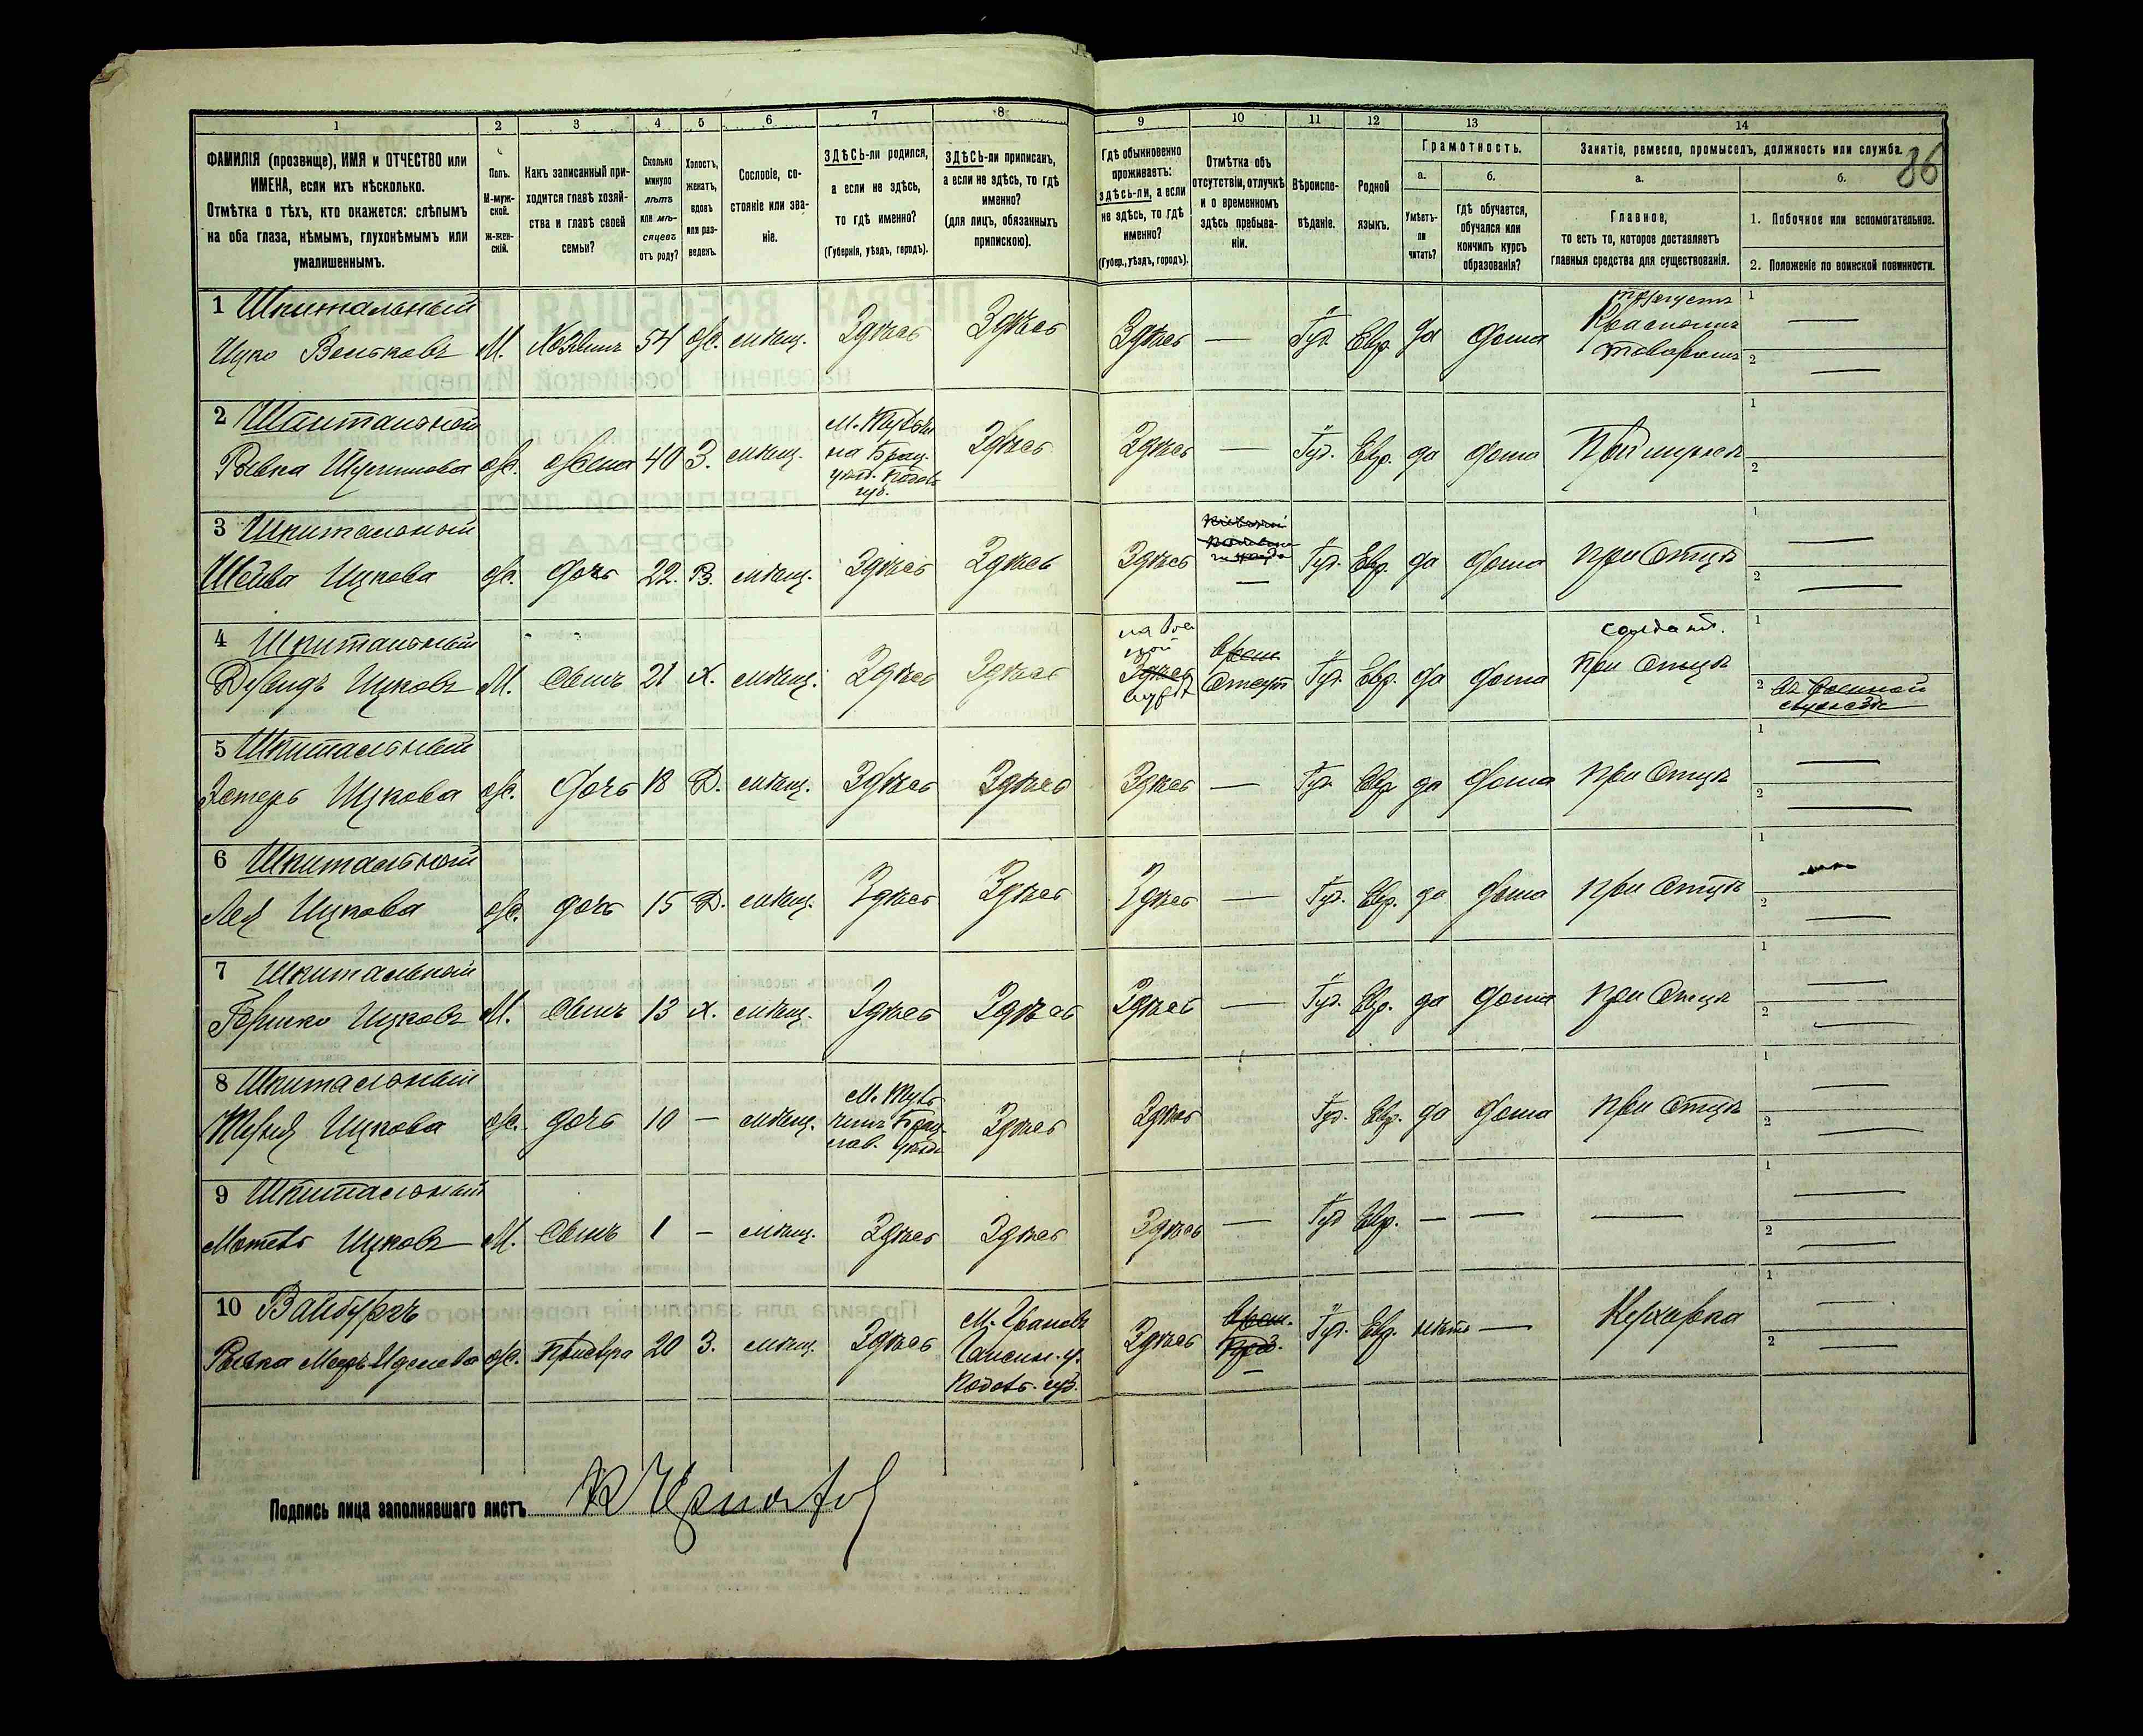 1 2 3 4 5 6 7 8 9 10 11 12 13 14
86
ФАМИЛІЯ (прозвище), ИМЯ и ОТЧЕСТВО или
ИМЕНА, если ихъ нѣсколько.
Отмѣтка о тѣхъ, кто окажется: слѣпымъ
на оба глаза, нѣмымъ, глухонѣмымъ или
умалишеннымъ.
Полъ.
М-муж-
ской.
ж-жен-
скій.
Какъ записанный при-
ходится главѣ хозяй-
ства и главѣ своей
семьи?
Сколько
минуло
лѣтъ
или мѣ-
сяцевъ
отъ роду?
Холостъ,
женатъ,
вдовъ
или раз-
веденъ.
Сословіе, со-
стояніе или зва-
ніе.
ЗДѢСЬ-ли родился,
а если не здѣсь,
то гдѣ именно?
(Губернія, уѣздъ, городъ).
ЗДѢСЬ-ли приписанъ,
а если не здѣсь, то гдѣ
именно?
(для лицъ, обязанныхъ
припискою).
Гдѣ обыкновенно
проживаетъ:
здѣсь-ли, а если
не здѣсь, то гдѣ
именно?
(Губер., уѣздъ, городъ).
Отмѣтка объ
отсутствіи, отлучкѣ
и о временномъ
здѣсь пребыва-
ніи.
Вѣроиспо-
вѣданіе.
Родной
языкъ.
Грамотность.
а.
Умѣетъ-
ли
читать?
б.
Гдѣ обучается,
обучался или
кончилъ курсъ
образованія?
Занятіе, ремесло, промыселъ, должность или служба.
а.
Главное,
то есть то, которое доставляетъ
главныя средства для существованія.
б.
1. Побочное или вспомогательное.
2. Положеніе по воинской повинности.
1 Шпитальный
Ицко Вольковъ М. Хозяинъ 54 ж. мѣщ. Здѣсь Здѣсь Здѣсь — Іуд. Евр. да дома
Краснымъ
товаромъ
1 —
2 —
2 Шпитальный
Ривка ж. жена 40 З. мѣщ.
на Брац.
уѣзд. Подоль
губ.
Здѣсь Здѣсь — Іуд. Евр. да дома При мужѣ
1
2
3 Шпитальный
Шейва Ицкова ж. дочь 22. В. мѣщ. Здѣсь Здѣсь Здѣсь — Іуд. Евр. да дома при Отцѣ
1 —
2 —
4 Шпитальный
Дувидъ Ицковъ М. Сынъ 21 х. мѣщ. Здѣсь Здѣсь Здѣсь
Врем.
Отсут
Іуд. Евр. да дома
солдатъ.
при Отцѣ
1
2 въ военной
службѣ
5 Шпитальный
Эстеръ Ицкова ж. дочь 18 Д. мѣщ. Здѣсь Здѣсь Здѣсь — Іуд. Евр. да дома при Отцѣ
1 —
2 —
6 Шпитальный
Лея Ицкова ж. дочь 15 Д. мѣщ. Здѣсь Здѣсь Здѣсь — Іуд. Евр. да дома при Отцѣ
1
2 —
7 Шпитальный
Ицковъ М. Сынъ 13 х. мѣщ. Здѣсь Здѣсь Здѣсь — Іуд. Евр. да дома при Отцѣ
1 —
2 —
8 Шпитальный
Ицкова ж. дочь 10 — мѣщ.
Брац-
лав. уѣзд
Здѣсь Здѣсь Іуд. Евр. да дома при Отцѣ
1 —
2 —
9 Шпитальный
Мотель Ицковъ М. Сынъ 1 — мѣщ. Здѣсь Здѣсь Здѣсь — Іуд. Евр. — — —
1 —
2 —
10 Вайнбургъ
ж. 20 З. мѣщ. Здѣсь
Гайсин. у.
Подоль. губ.
Здѣсь
Врем.
—
Іуд. Евр. нѣтъ — Кухарка
1 —
2 —
Подпись лица заполнявшаго листъ